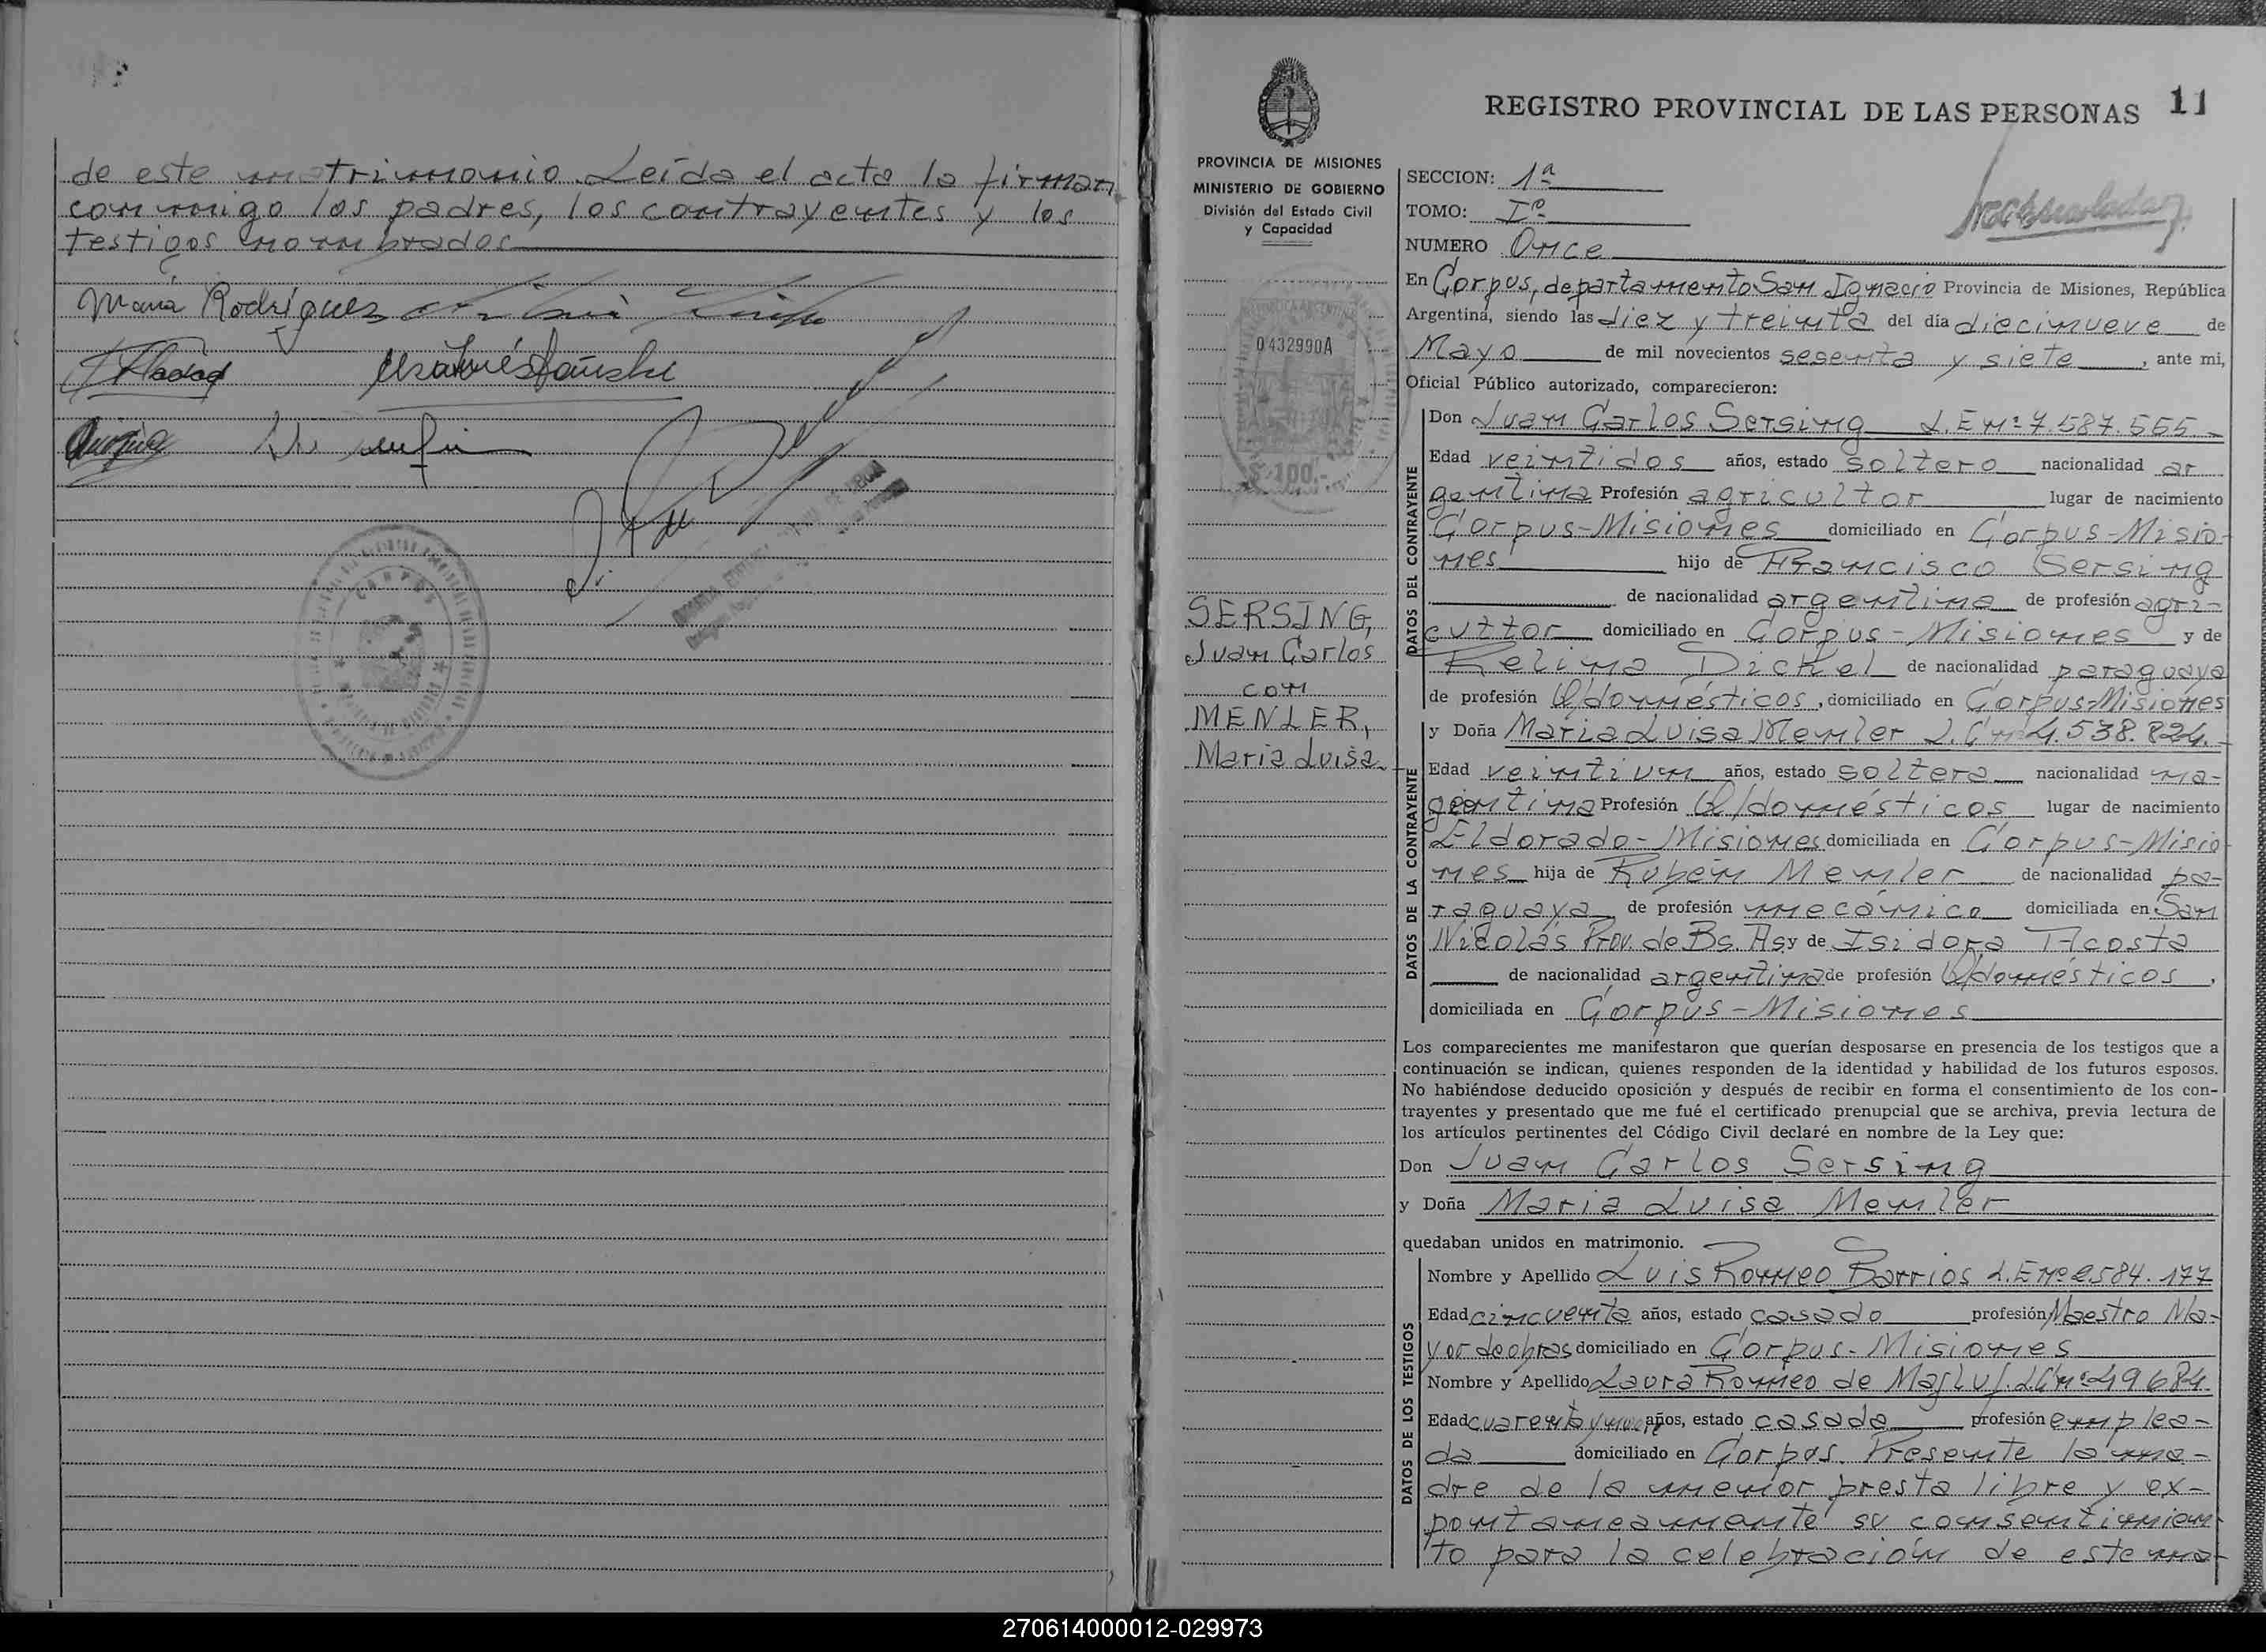 de este matrimonio. Leída el acta la firman
conmigo los padres, los contrayentes y los
testigos nombrados
Maria Rodríguez
REGISTRO PROVINCIAL DE LAS PERSONAS 11
PROVINCIA DE MISIONES
MINISTERIO DE GOBIERNO
División del Estado Civil
y Capacidad
0432990A
$ 100.-
SERSING,
Juan Carlos
con
MENLER,
Maria Luisa
SECCION: 1ª
TOMO: Iº
NUMERO Once
En Corpus, departamento San Ignacio Provincia de Misiones, República
Argentina, siendo las diez y treinta del día diecinueve de
Mayo de mil novecientos sesenta y siete, ante mi,
Oficial Público autorizado, comparecieron:
DATOS DEL CONTRAYENTE
Don Juan Carlos Sersing L.E nº 7.587.565.-
Edad veintidos años, estado soltero nacionalidad ar
gentina Profesión agricultor lugar de nacimiento
Corpus-Misiones domiciliado en Corpus-Misio-
nes hijo de Francisco Sersing
de nacionalidad argentina de profesión agri-
cultor domiciliado en Corpus-Misiones y de
Relina Dickel de nacionalidad paraguaya
de profesión Q/domésticos, domiciliado en Corpus-Misiones
DATOS DE LA CONTRAYENTE
y Doña Maria Luisa Menler L.C nº 4.538.824.-
Edad veintiun años, estado soltera nacionalidad
gentina Profesión Q/domésticos lugar de nacimiento
Eldorado-Misiones domiciliada en Corpus-Misio
nes hija de Rubén Menler de nacionalidad pa-
raguaya de profesión mecánico domiciliada en San
Nicolás Prov. de Bs. As y de Isidora Acosta
de nacionalidad argentina de profesión Q/domésticos,
domiciliada en Corpus-Misiones
Los comparecientes me manifestaron que querían desposarse en presencia de los testigos que a
continuación se indican, quienes responden de la identidad y habilidad de los futuros esposos.
No habiéndose deducido oposición y después de recibir en forma el consentimiento de los con-
trayentes y presentado que me fué el certificado prenupcial que se archiva, previa lectura de
los artículos pertinentes del Código Civil declaré en nombre de la Ley que:
Don Juan Carlos Sersing
y Doña Maria Luisa Menler
quedaban unidos en matrimonio.
DATOS DE LOS TESTIGOS
Nombre y Apellido Luis Romeo Barrios L.E nº 2584.177
Edad cincuenta años, estado casado profesión Maestro Ma-
yor de obras domiciliado en Corpus-Misiones
Nombre y Apellido Laura Romeo de Majluf.
Edad cuarenta y nueve años, estado casada profesión emplea-
da domiciliado en Corpus. Presente la ma-
dre de la menor presta libre y ex-
pontaneamente su consentimien
to para la celebración de este ma-
270614000012-029973